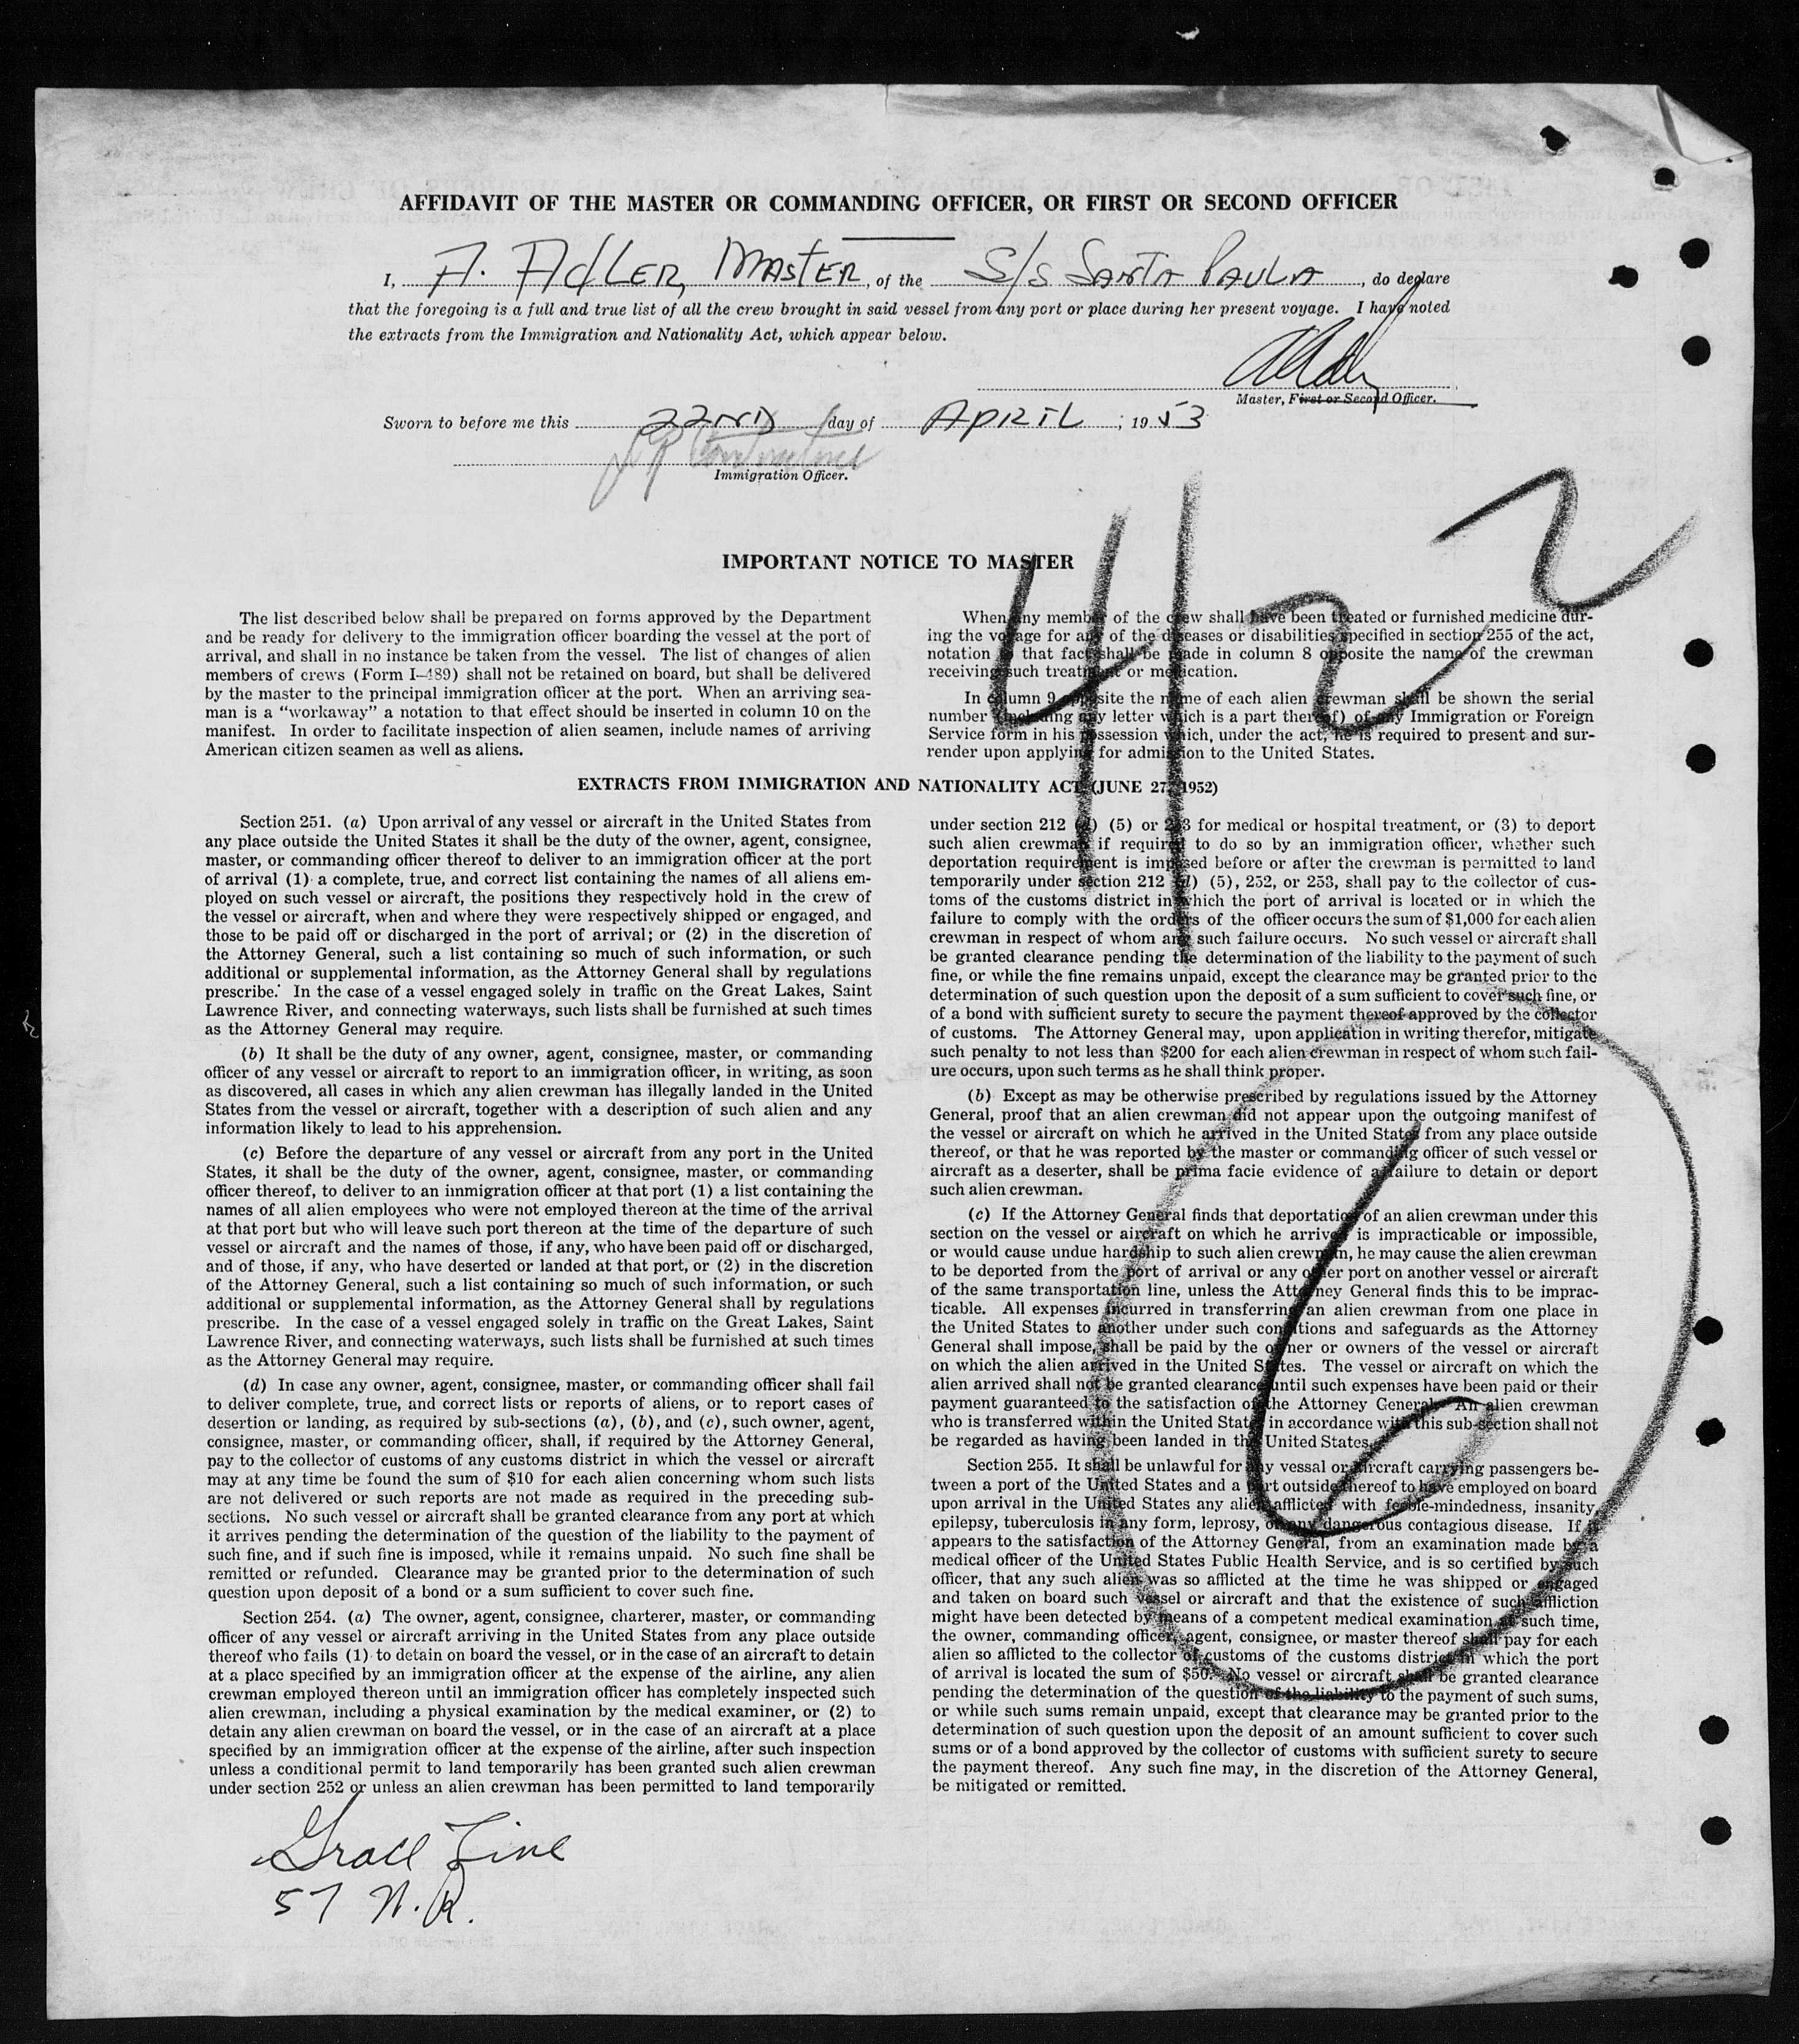 AFFIDAVIT OF THE MASTER OR COMMANDING OFFICER, OR FIRST OR SECOND OFFICER
I, A. Adler, Master, of the S/S Santa Paula, do declare
that the foregoing is a full and true list of all the crew brought in said vessel from any port or place during her present voyage. I have noted
the extracts from the Immigration and Nationality Act, which appear below.
Master, First or Second Officer.
Sworn to before me this 22nd day of April, 1953
Immigration Officer.
422
IMPORTANT NOTICE TO MASTER
The list described below shall be prepared on forms approved by the Department
and be ready for delivery to the immigration officer boarding the vessel at the port of
arrival, and shall in no instance be taken from the vessel. The list of changes of alien
members of crews (Form I-489) shall not be retained on board, but shall be delivered
by the master to the principal immigration officer at the port. When an arriving sea-
man is a "workaway" a notation to that effect should be inserted in column 10 on the
manifest. In order to facilitate inspection of alien seamen, include names of arriving
American citizen seamen as well as aliens.
When any member of the crew shall have been treated or furnished medicine dur-
ing the voyage for any of the diseases or disabilities specified in section 255 of the act,
notation of that fact shall be made in column 8 opposite the name of the crewman
receiving such treatment or medication.
In column 9 opposite the name of each alien crewman shall be shown the serial
number (including any letter which is a part thereof) of any Immigration or Foreign
Service form in his possession which, under the act, he is required to present and sur-
render upon applying for admission to the United States.
EXTRACTS FROM IMMIGRATION AND NATIONALITY ACT (JUNE 27, 1952)
Section 251. (a) Upon arrival of any vessel or aircraft in the United States from
any place outside the United States it shall be the duty of the owner, agent, consignee,
master, or commanding officer thereof to deliver to an immigration officer at the port
of arrival (1) a complete, true, and correct list containing the names of all aliens em-
ployed on such vessel or aircraft, the positions they respectively hold in the crew of
the vessel or aircraft, when and where they were respectively shipped or engaged, and
those to be paid off or discharged in the port of arrival; or (2) in the discretion of
the Attorney General, such a list containing so much of such information, or such
additional or supplemental information, as the Attorney General shall by regulations
prescribe. In the case of a vessel engaged solely in traffic on the Great Lakes, Saint
Lawrence River, and connecting waterways, such lists shall be furnished at such times
as the Attorney General may require.
(b) It shall be the duty of any owner, agent, consignee, master, or commanding
officer of any vessel or aircraft to report to an immigration officer, in writing, as soon
as discovered, all cases in which any alien crewman has illegally landed in the United
States from the vessel or aircraft, together with a description of such alien and any
information likely to lead to his apprehension.
(c) Before the departure of any vessel or aircraft from any port in the United
States, it shall be the duty of the owner, agent, consignee, master, or commanding
officer thereof, to deliver to an immigration officer at that port (1) a list containing the
names of all alien employees who were not employed thereon at the time of the arrival
at that port but who will leave such port thereon at the time of the departure of such
vessel or aircraft and the names of those, if any, who have been paid off or discharged,
and of those, if any, who have deserted or landed at that port, or (2) in the discretion
of the Attorney General, such a list containing so much of such information, or such
additional or supplemental information, as the Attorney General shall by regulations
prescribe. In the case of a vessel engaged solely in traffic on the Great Lakes, Saint
Lawrence River, and connecting waterways, such lists shall be furnished at such times
as the Attorney General may require.
(d) In case any owner, agent, consignee, master, or commanding officer shall fail
to deliver complete, true, and correct lists or reports of aliens, or to report cases of
desertion or landing, as required by sub-sections (a), (b), and (c), such owner, agent,
consignee, master, or commanding officer, shall, if required by the Attorney General,
pay to the collector of customs of any customs district in which the vessel or aircraft
may at any time be found the sum of $10 for each alien concerning whom such lists
are not delivered or such reports are not made as required in the preceding sub-
sections. No such vessel or aircraft shall be granted clearance from any port at which
it arrives pending the determination of the question of the liability to the payment of
such fine, and if such fine is imposed, while it remains unpaid. No such fine shall be
remitted or refunded. Clearance may be granted prior to the determination of such
question upon deposit of a bond or a sum sufficient to cover such fine.
Section 254. (a) The owner, agent, consignee, charterer, master, or commanding
officer of any vessel or aircraft arriving in the United States from any place outside
thereof who fails (1) to detain on board the vessel, or in the case of an aircraft to detain
at a place specified by an immigration officer at the expense of the airline, any alien
crewman employed thereon until an immigration officer has completely inspected such
alien crewman, including a physical examination by the medical examiner, or (2) to
detain any alien crewman on board the vessel, or in the case of an aircraft at a place
specified by an immigration officer at the expense of the airline, after such inspection
unless a conditional permit to land temporarily has been granted such alien crewman
under section 252 or unless an alien crewman has been permitted to land temporarily
under section 212 (d) (5) or 253 for medical or hospital treatment, or (3) to deport
such alien crewman if required to do so by an immigration officer, whether such
deportation requirement is imposed before or after the crewman is permitted to land
temporarily under section 212 (d) (5), 252, or 253, shall pay to the collector of cus-
toms of the customs district in which the port of arrival is located or in which the
failure to comply with the orders of the officer occurs the sum of $1,000 for each alien
crewman in respect of whom any such failure occurs. No such vessel or aircraft shall
be granted clearance pending the determination of the liability to the payment of such
fine, or while the fine remains unpaid, except the clearance may be granted prior to the
determination of such question upon the deposit of a sum sufficient to cover such fine, or
of a bond with sufficient surety to secure the payment thereof approved by the collector
of customs. The Attorney General may, upon application in writing therefor, mitigate
such penalty to not less than $200 for each alien crewman in respect of whom such fail-
ure occurs, upon such terms as he shall think proper.
(b) Except as may be otherwise prescribed by regulations issued by the Attorney
General, proof that an alien crewman did not appear upon the outgoing manifest of
the vessel or aircraft on which he arrived in the United States from any place outside
thereof, or that he was reported by the master or commanding officer of such vessel or
aircraft as a deserter, shall be prima facie evidence of a failure to detain or deport
such alien crewman.
(c) If the Attorney General finds that deportation of an alien crewman under this
section on the vessel or aircraft on which he arrived is impracticable or impossible,
or would cause undue hardship to such alien crewman, he may cause the alien crewman
to be deported from the port of arrival or any other port on another vessel or aircraft
of the same transportation line, unless the Attorney General finds this to be imprac-
ticable. All expenses incurred in transferring an alien crewman from one place in
the United States to another under such conditions and safeguards as the Attorney
General shall impose, shall be paid by the owner or owners of the vessel or aircraft
on which the alien arrived in the United States. The vessel or aircraft on which the
alien arrived shall not be granted clearance until such expenses have been paid or their
payment guaranteed to the satisfaction of the Attorney General. An alien crewman
who is transferred within the United States in accordance with this sub-section shall not
be regarded as having been landed in the United States.
Section 255. It shall be unlawful for any vessal or aircraft carrying passengers be-
tween a port of the United States and a port outside thereof to have employed on board
upon arrival in the United States any alien afflicted with feeble-mindedness, insanity,
epilepsy, tuberculosis in any form, leprosy, or any dangerous contagious disease. If it
appears to the satisfaction of the Attorney General, from an examination made by a
medical officer of the United States Public Health Service, and is so certified by such
officer, that any such alien was so afflicted at the time he was shipped or engaged
and taken on board such vessel or aircraft and that the existence of such affliction
might have been detected by means of a competent medical examination at such time,
the owner, commanding officer, agent, consignee, or master thereof shall pay for each
alien so afflicted to the collector of customs of the customs district in which the port
of arrival is located the sum of $50. No vessel or aircraft shall be granted clearance
pending the determination of the question of the liability to the payment of such sums,
or while such sums remain unpaid, except that clearance may be granted prior to the
determination of such question upon the deposit of an amount sufficient to cover such
sums or of a bond approved by the collector of customs with sufficient surety to secure
the payment thereof. Any such fine may, in the discretion of the Attorney General,
be mitigated or remitted.
6
Grace Line
57 N.R.